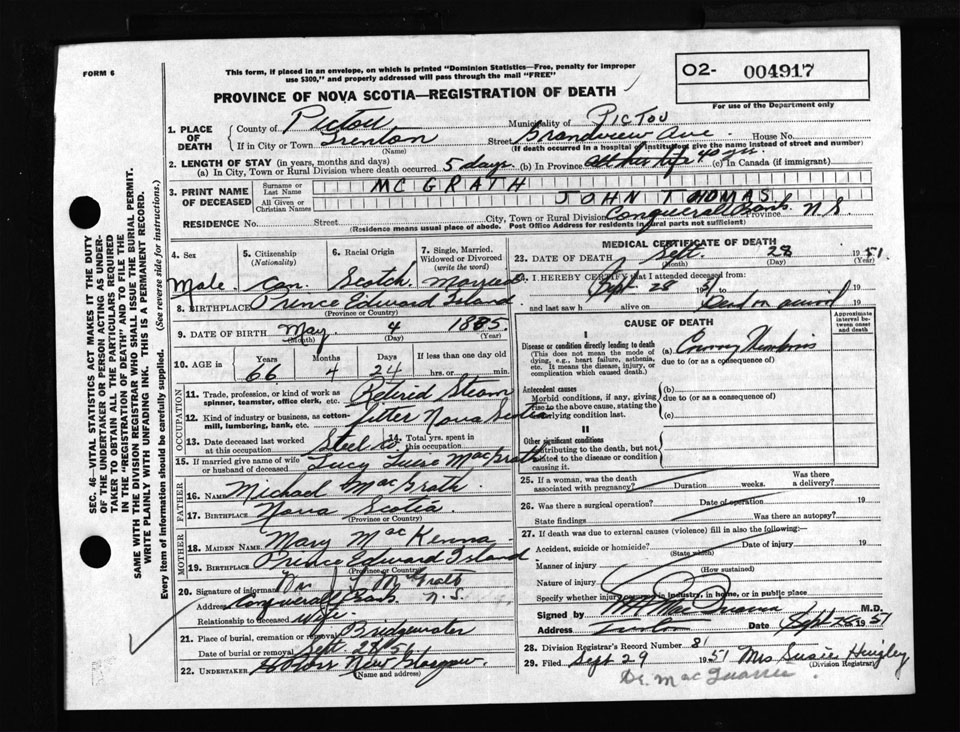 FORM 6
This form, if placed in an envelope, on which is printed "Dominion Statistics—Free, penalty for improper
use $300," and properly addressed will pass through the mail "FREE"
O2- 004917
For use of the Department only
PROVINCE OF NOVA SCOTIA—REGISTRATION OF DEATH
1. PLACE OF DEATH
County of Pictou Municipality of PICTOU
If in City or Town Trenton (Name) Street Grandview Ave. House No.
(If death occurred in a hospital or institution, give the name instead of street and number)
2. LENGTH OF STAY (in years, months and days)
(a) In City, Town or Rural Division where death occurred 5 days (b) In Province (c) In Canada (if immigrant)
3. PRINT NAME OF DECEASED
Surname or Last Name MCGRATH
All Given or Christian Names JOHN THOMAS
RESIDENCE No. Street City, Town or Rural Division Conquerall Bank Province N.S.
(Residence means usual place of abode. Post Office Address for residents in rural parts not sufficient)
4. Sex Male
5. Citizenship (Nationality) Can.
6. Racial Origin Scotch
7. Single, Married, Widowed or Divorced (write the word) Married
8. BIRTHPLACE Prince Edward Island
(Province or Country)
9. DATE OF BIRTH May 4 1885
(Month) (Day) (Year)
10. AGE in Years 66 Months 4 Days 24 If less than one day old hrs. or min.
OCCUPATION
11. Trade, profession, or kind of work as spinner, teamster, office clerk, etc. Retired Steam
12. Kind of industry or business, as cotton-mill, lumbering, bank, etc. fitter Nova Scotia
13. Date deceased last worked at this occupation Steel Co.
14. Total yrs. spent in this occupation
15. If married give name of wife or husband of deceased Lucy MacGrath
FATHER
16. NAME Michael MacGrath
17. BIRTHPLACE Nova Scotia
(Province or Country)
MOTHER
18. MAIDEN NAME Mary MacKenna
19. BIRTHPLACE Prince Edward Island
(Province or Country)
20. Signature of informant
Address Conquerall Bank N.S.
Relationship to deceased Wife
21. Place of burial, cremation or removal Bridgewater
Date of burial or removal Sept. 28 51
22. UNDERTAKER New Glasgow
(Name and address)
MEDICAL CERTIFICATE OF DEATH
23. DATE OF DEATH Sept. 28 1951
(Month) (Day) (Year)
24. I HEREBY CERTIFY that I attended deceased from
Sept 28 51 to 19
and last saw h alive on Dead on arrival 19
CAUSE OF DEATH
Approximate interval between onset and death
I
Disease or condition directly leading to death
(This does not mean the mode of dying, e.g., heart failure, asthenia, etc. It means the disease, injury, or complication which caused death.)
(a)
due to (or as a consequence of)
Antecedent causes
Morbid conditions, if any, giving rise to the above cause, stating the underlying condition last.
(b)
due to (or as a consequence of)
(c)
II
Other significant conditions
contributing to the death, but not related to the disease or condition causing it.
25. If a woman, was the death associated with pregnancy? Duration weeks. Was there a delivery?
26. Was there a surgical operation? Date of operation 19
State findings Was there an autopsy?
27. If death was due to external causes (violence) fill in also the following:—
Accident, suicide or homicide? (State which) Date of injury 19
Manner of injury (How sustained)
Nature of injury
Specify whether injury in industry, in home, or in public place
Signed by M.D.
Address Trenton Date Sept 28 1951
28. Division Registrar's Record Number 81
29. Filed Sept 29 1951 Mrs Susie
(Division Registrar)
Dr. MacQuarrie
SEC. 46—VITAL STATISTICS ACT MAKES IT THE DUTY
OF THE UNDERTAKER OR PERSON ACTING AS UNDER-
TAKER TO OBTAIN ALL THE PARTICULARS REQUIRED
IN THE "REGISTRATION OF DEATH" AND TO FILE THE
SAME WITH THE DIVISION REGISTRAR WHO SHALL ISSUE THE BURIAL PERMIT.
WRITE PLAINLY WITH UNFADING INK. THIS IS A PERMANENT RECORD.
Every item of information should be carefully supplied. (See reverse side for instructions.)